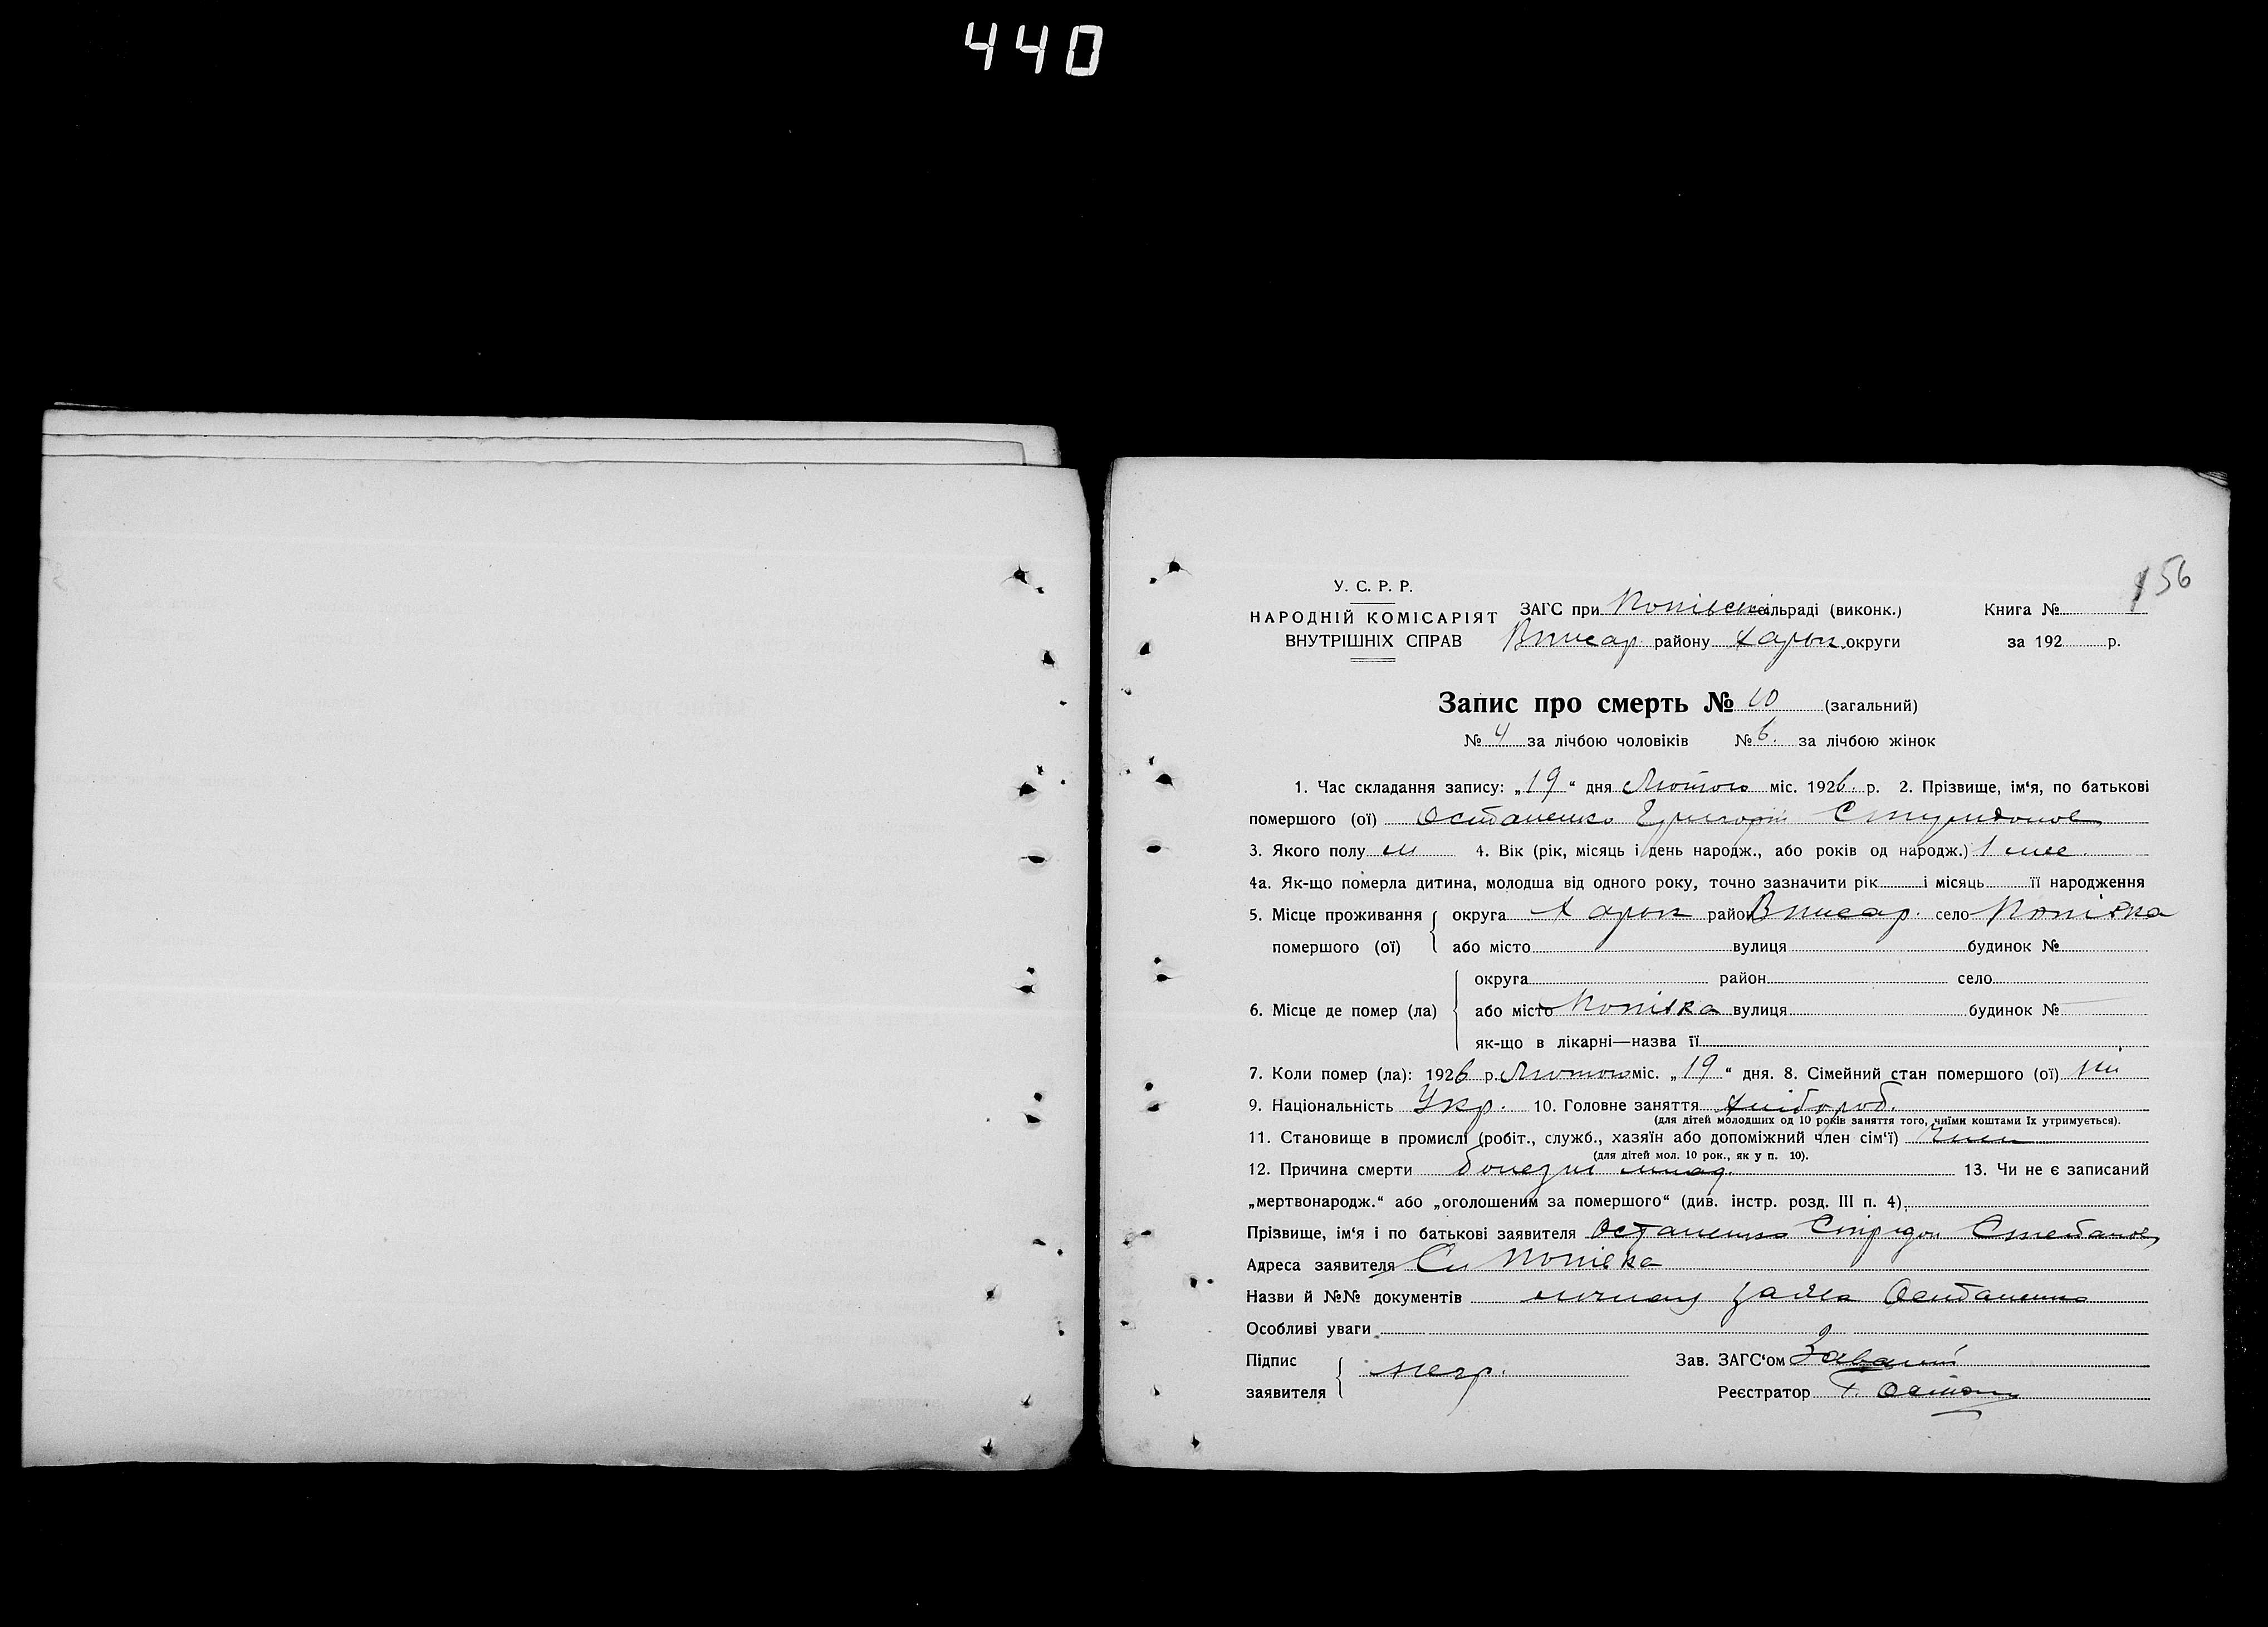 440
156
У. С. Р. Р.
НАРОДНІЙ КОМІСАРІЯТ
ВНУТРІШНІХ СПРАВ
ЗАГС при Попівській сільраді (виконк.)
Вписар району Харьк округи
Книга №
за 192 р.
Запис про смерть № 10 (загальний)
№ 4 за лічбою чоловіків № 6. за лічбою жінок
1. Час складання запису: „19“ дня Лютого міс. 1926 р. 2. Прізвище, ім‘я, по батькові
помершого (ої) Остапенко Григорій Спиридонов
3. Якого полу м 4. Вік (рік, місяць і день народж., або років од народж.) 1 мес.
4а. Як-що померла дитина, молодша від одного року, точно зазначити рік і місяць її народження
5. Місце проживання помершого (ої) округа Харьк район Вписар. село Попівка
або місто вулиця будинок №
6. Місце де помер (ла) округа район село
або місто Попівка вулиця будинок №
як-що в лікарні—назва її
7. Коли помер (ла): 1926 р. Лютого міс. „19“ дня. 8. Сімейний стан помершого (ої)
9. Національність Укр. 10. Головне заняття Хлібороб.
(для дітей молодших од 10 років заняття того, чиїми коштами їх утримується).
11. Становище в промислі (робіт., служб., хазяїн або допоміжний член сім‘ї) член
(для дітей мол. 10 рок., як у п. 10).
12. Причина смерти 13. Чи не є записаний
„мертвонародж.“ або „оголошеним за помершого“ (див. інстр. розд. III п. 4)
Прізвище, ім‘я і по батькові заявителя Остапенко Спридон Степанов
Адреса заявителя Сл Попівка
Назви й №№ документів заява Остапенко
Особливі уваги
Підпис заявителя негр.
Зав. ЗАГС‘ом
Реєстратор Г. Остап